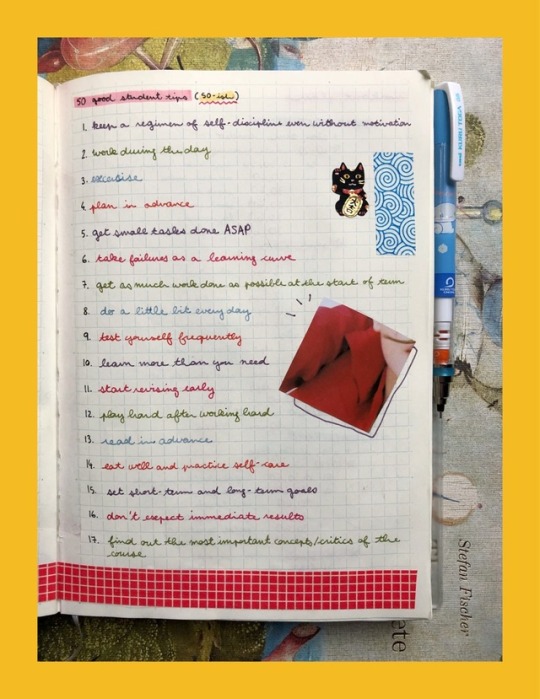 50 good student tips (50-ish)
1. keep a regimen of self-discipline even without motivation
2. work during the day
3. excercise
4. plan in advance
5. get small tasks done ASAP
6. take failures as a learning curve
7. get as much work done as possible at the start of term
8. do a little bit every day
9. test yourself frequently
10. learn more than you need
11. start revising early
12. play hard after working hard
13. read in advance
14. eat well and practice self-care
15. set short-term and long-term goals
16. don't expect immediate results
17. find out the most important concepts/critics of the
course
Stefan Fischer
ete